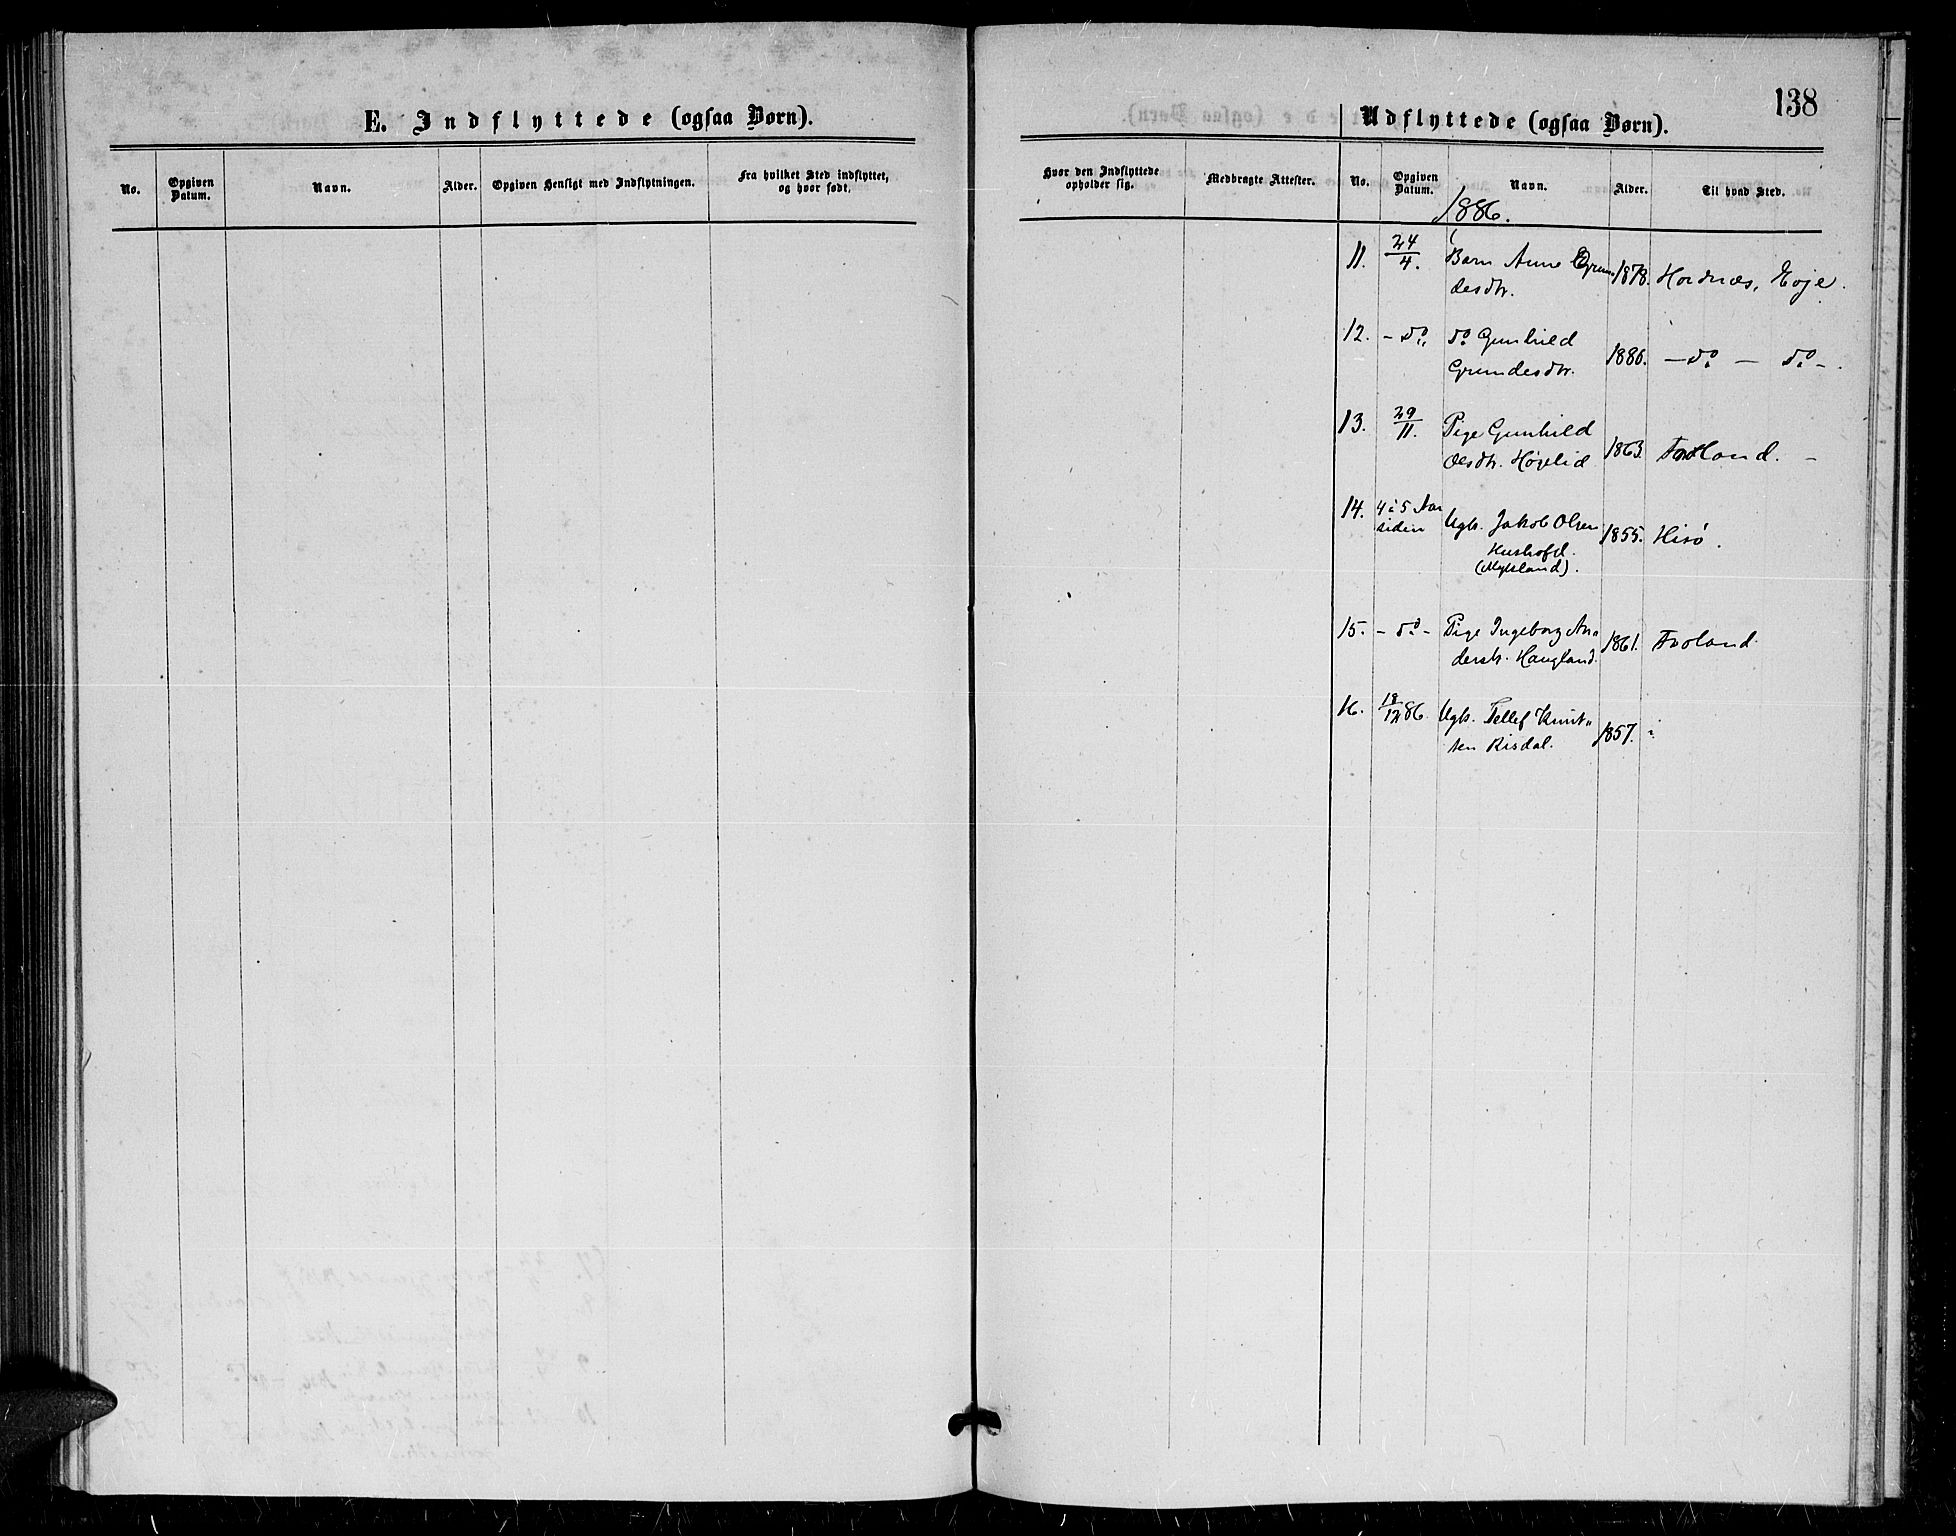 E. Indflyttede (ogsaa Børn).
No.
Opgiven
Datum.
Navn.
Alder.
Opgiven Hensigt med Indflytningen.
Fra hvilket Sted indflyttet,
og hvor født.
138
Udflyttede (ogsaa Børn).
Hvor den Indflyttede
opholder sig.
Medbragte Attester.
No.
Opgiven
Datum.
Navn.
Alder.
Til hvad Sted.
1886.
11. 24/4. Barn Anne Grun- 1878. Hordnæs, Evje.
desdtr.
12. - do „ do Gunhild
Grundesdtr. 1886. - do - do -.
13. 29/11. Pige Gunhild
Olsdtr. Høgelid 1863. Froland. -
14. 4 à 5 Aar
siden Ugk. Jakob Olsen 1855. Hisø.
Hushofd.
(Mykland).
15. - do - Pige Ingeborg An-
dersdr. Haugland. 1861. Froland.
16. 18/12 86. Ugk. Tellef Knut-
sen Risdal. 1857. "